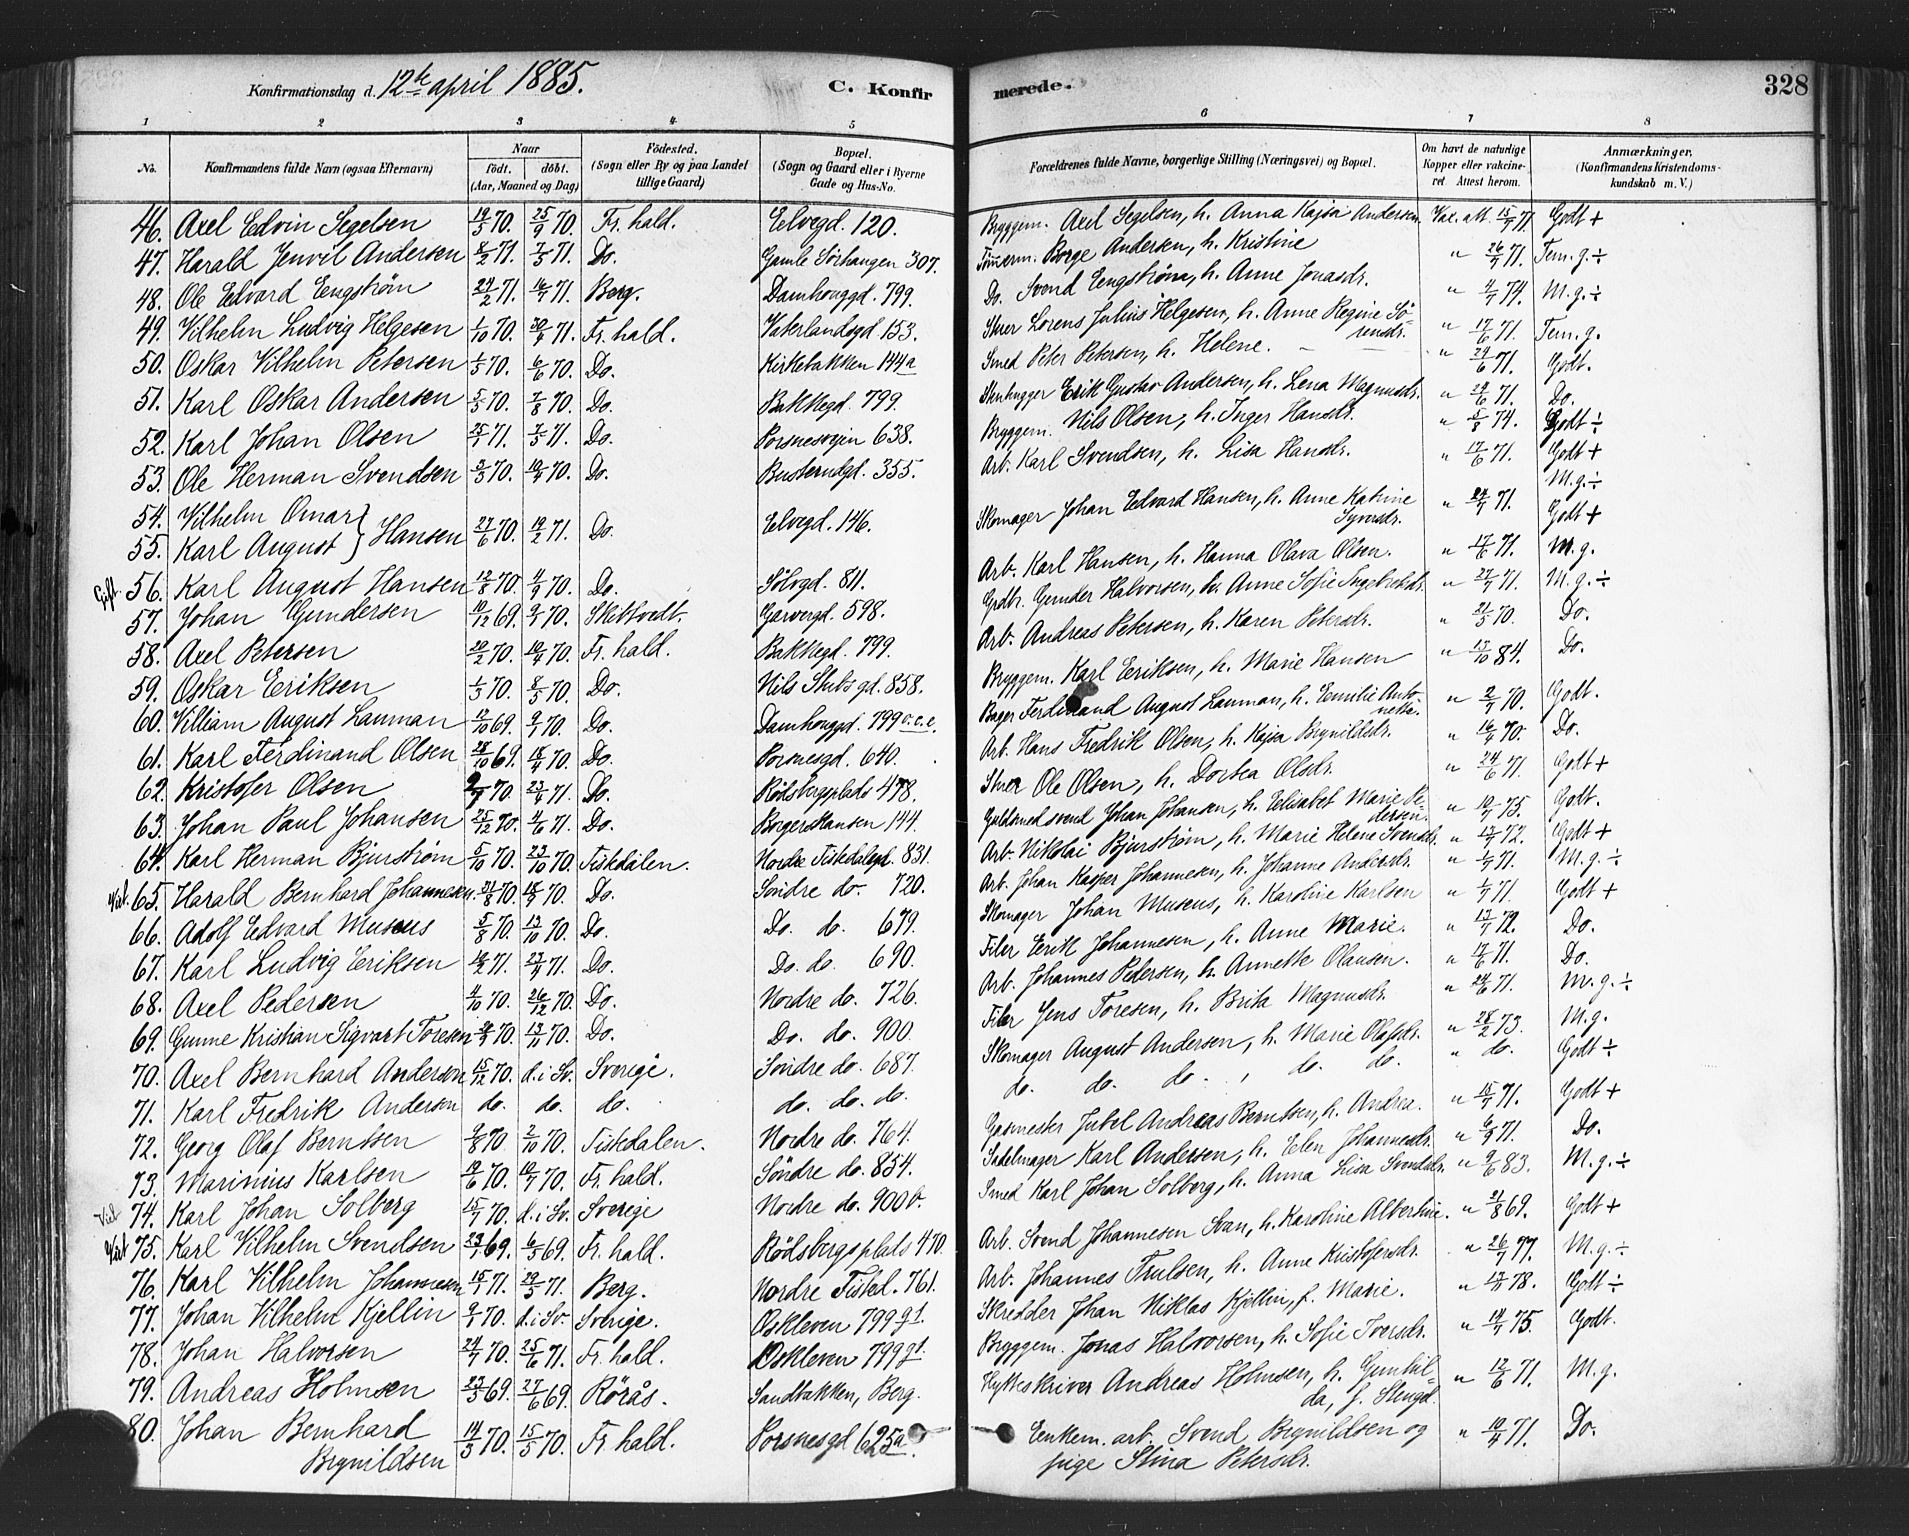 Konfirmationsdag d. 12te april 1885.
C. Konfirmerede.
328
1 2 3 4 5 6 7 8
No. Konfirmandens fulde Navn (ogsaa Efternavn) Naar född. döbt. (Aar, Maaned og Dag) Födested. (Sogn eller By og paa Landet tillige Gaard) Bopæl. (Sogn og Gaard eller i Byerne Gade og Hus-No. Forældrenes fulde Navne, borgerlige Stilling (Næringsvei) og Bopæl. Om havt de naturlige Kopper eller vakcineret Attest herom. Anmærkninger. (Konfirmandens Kristendomskundskab m. V.)
46. Axel Edvin Segelsen 19/5 70. 25/9 70. Fr. hald. Elvegd. 120. Bryggem. Axel Segelsen, h. Anna Kajsa Andersen. Vax. att. 15/7 71. Godt +
47. Harald Jenvil Andersen 8/2 71. 7/5 71. Do. Gamle Sörhaugen 307. Tömmerm. Borge Andersen, h. Kristine " 26/7 71. Tem. g. ÷
48. Ole Edvard Engström 24/2 71. 16/7 71. Berg. Damhouggd. 799. Do. Svend Engström, h. Anne Jonasdr. " 4/7 74. M. g. ÷
49. Vilhelm Ludvig Helgesen 1/10 70. 30/4 71. Fr. hald. Vaterlandsgd. 153. Lorens Julius Helgesen, h. Anne Regine Sörensdr. " 17/6 71. Tem. g.
50. Oskar Vilhelm Petersen 1/5 70. 6/6 70. Do. Kirkebakken 144a Smed Peter Petersen, h. Helene. " 24/6 71. Godt.
51. Karl Oskar Andersen 5/5 70. 7/8 70. Do. Bakkegd. 799. Stenhugger Erik Gustav Andersen, h. Lena Magnusdr. " 24/6 71. Do.
52. Karl Johan Olsen 25/1 71. 7/5 71. Do. Porsnesvejen 638. Bryggem. Nils Olsen, h. Inger Hansdr. " 5/8 74. Godt ÷
53. Ole Herman Svendsen 3/3 70. 10/4 70. Do. Busterudgd. 355. Arb. Karl Svendsen, h. Lisa Hansdr. " 17/6 71. Godt +
54. Vilhelm Omar } Hansen 27/6 70. 19/2 71. Do. Elvegd. 146. Skomager Johan Edvard Hansen, h. Anne Katrine Syversdr. " 24/7 71. M. g. ÷
55. Karl August } Godt +
Gift. 56. Karl August Hansen 12/8 70. 4/9 70. Do. Sölvgd. 811. Arb. Karl Hansen, h. Hanna Olava Olsen. " 17/6 71. M. g.
57. Johan Gundersen 10/12 69. 9/7 70. Skebtvedt. Garvergd. 598. Grdbr. Gunder Halvorsen, h. Anne Sofie Ingebretsdr. " 27/7 71. M. g. ÷
58. Axel Petersen 20/2 70. 10/4 70. Fr. hald. Bakkegd. 799. Arb. Andreas Petersen, h. Karen Petersdr. " 21/5 70. Do.
59. Oskar Eriksen 1/3 70. 8/5 70. Do. Nils Stubs gd. 858. Bryggem. Karl Eriksen, h. Marie Hansen " 13/10 84. Do.
60. Villiam August Lauman 17/10 69. 9/1 70. Do. Damhouggd. 799 v.c.e. Bager Ferdinand August Lauman, h. Emilie Antonette. " 2/7 70. Godt.
61. Karl Ferdinand Olsen 28/10 69. 18/4 70. Do. Porsnesgd. 640. Arb. Hans Fredrik Olsen, h. Kajsa Brynildsdr. " 16/7 70. Do.
62. Kristofer Olsen 2/7 70. 23/4 71. Do. Rödsbergplads 478. Ole Olsen, h. Dortea Olsdr. " 24/6 71. Godt +
63. Johan Paul Johansen 25/12 70. 4/6 71. Do. BorgerSkansen 144. Guldsmedsvend Johan Johansen, h. Elisabet Marie Pedersen. " 10/7 75. Godt.
64. Karl Herman Bjurström 5/10 70. 23/10 70. Tistedalen. Nordre Tistedalsgd. 831. Arb. Nikolai Bjurström, h. Marie Helene Svensdr. " 13/7 72. Godt +
Vid. 65. Harald Bernhard Johannesen. 21/8 70. 18/9 70. Do. Söndre do. 720. Arb. Johan Kasper Johannesen, h. Johanne Andersdr. " 1/7 71. M. g. ÷
66. Adolf Edvard Museus 5/8 70. 13/10 70. Do. Do. do. 679. Skomager Johan Museus, h. Karoline Karlsen " 1/7 71. Godt +
67. Karl Ludvig Eriksen 14/2 71. 23/4 71. Do. Do. do. 690. Filer Erik Johannesen, h. Anne Marie. " 13/7 72. Do.
68. Axel Pedersen 4/10 70. 26/12 70. Do. Nordre do. 726. Arb. Johannes Pedersen, h. Annette Olausen. " 17/6 71. Do.
69. Gunne Kristian Sigvart Toresen 2/9 70. 13/11 70. Do. Do. do. 900. Filer Jens Toresen, h. Brita Magnusdr. " 24/6 71. M. g. ÷
70. Axel Bernhard Anderson 15/12 70. d. i Sv. Sverige. Söndre do. 687. Skomager August Andersen, h. Marie Olafsdr. " 28/2 73. M. g.
71. Karl Fredrik Anderson do. do. do. do. do. do. do. do. do. do. do. " do. Godt ÷
72. Georg Olaf Berntsen 9/8 70. 2/10 70. Tistedalen. Nordre do. 764. Gasmester Jubel Andreas Berntsen, h. Andrea. " 15/7 71. Godt +
73. Marinius Karlsen 19/6 70. 10/7 70. Fr. hald. Söndre do. 854. Sadelmager Karl Andersen, h. Elen Johannesdr. " 6/9 71. Do.
Vid 74. Karl Johan Solberg 15/7 70. d. i Sv. Sverige Nordre do. 900 b. Smed Karl Johan Solberg, h. Anna Lisa Svendsdr. " 9/6 83. M. g. ÷
Vid. 75. Karl Vilhelm Svendsen 23/1 69. 6/5 69. Fr. hald. Rödsbergsplads 470. Arb. Svend Johannesen Svan, h. Karoline Albertine. " 21/8 69. Godt +
76. Karl Vilhelm Johannesen 15/1 71. 29/5 71. Berg. Nordre Tisted. 761. Arb. Johannes Trulsen, h. Anne Kristofersdr. " 26/7 77. M. g. ÷
77. Johan Vilhelm Kjellin 9/1 70. d. i Sv. Sverige. Oskleven 799 g1. Skrædder Johan Niklas Kjellin, f. Marie. " 13/7 78. Godt ÷
78. Johan Halvorsen 24/7 70. 25/6 71. Fr. hald. Oskleven 799 g1. Bryggem. Jonas Halvorsen, h. Sofie Iversdr. " 14/7 75. Godt.
79. Andreas Holmsen 23/3 69. 27/6 69. Rörås. Sandbakken, Berg. Hytteskriver Andreas Holmsen, h. Gunhilda, f. Stengd. " 12/6 71. M. g.
80. Johan Bernhard Brynildsen 14/3 70. 15/5 70. Fr. hald. Porsnesgd 625a. Enkem. arb. Svend Brynildsen og pige Stina Petersdr. " 10/4 71. Do.